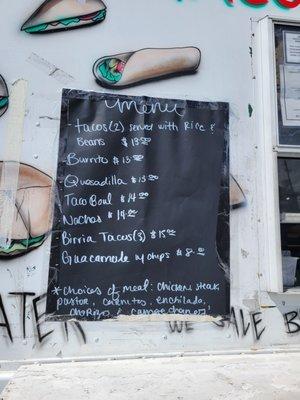 Menu
- Tacos(2) served with Rice &
Beans $13.00
- Burrito $13.00
- Quesadilla $13.00
- Taco Bowl $14.00
- Nachos $14.00
Birria Tacos(3) $15.00
Guacamole w/ chips $8.00
* Choices of meat: chicken, steak,
pastor, carnitas, enchilada,
chorizo &
WE SALE